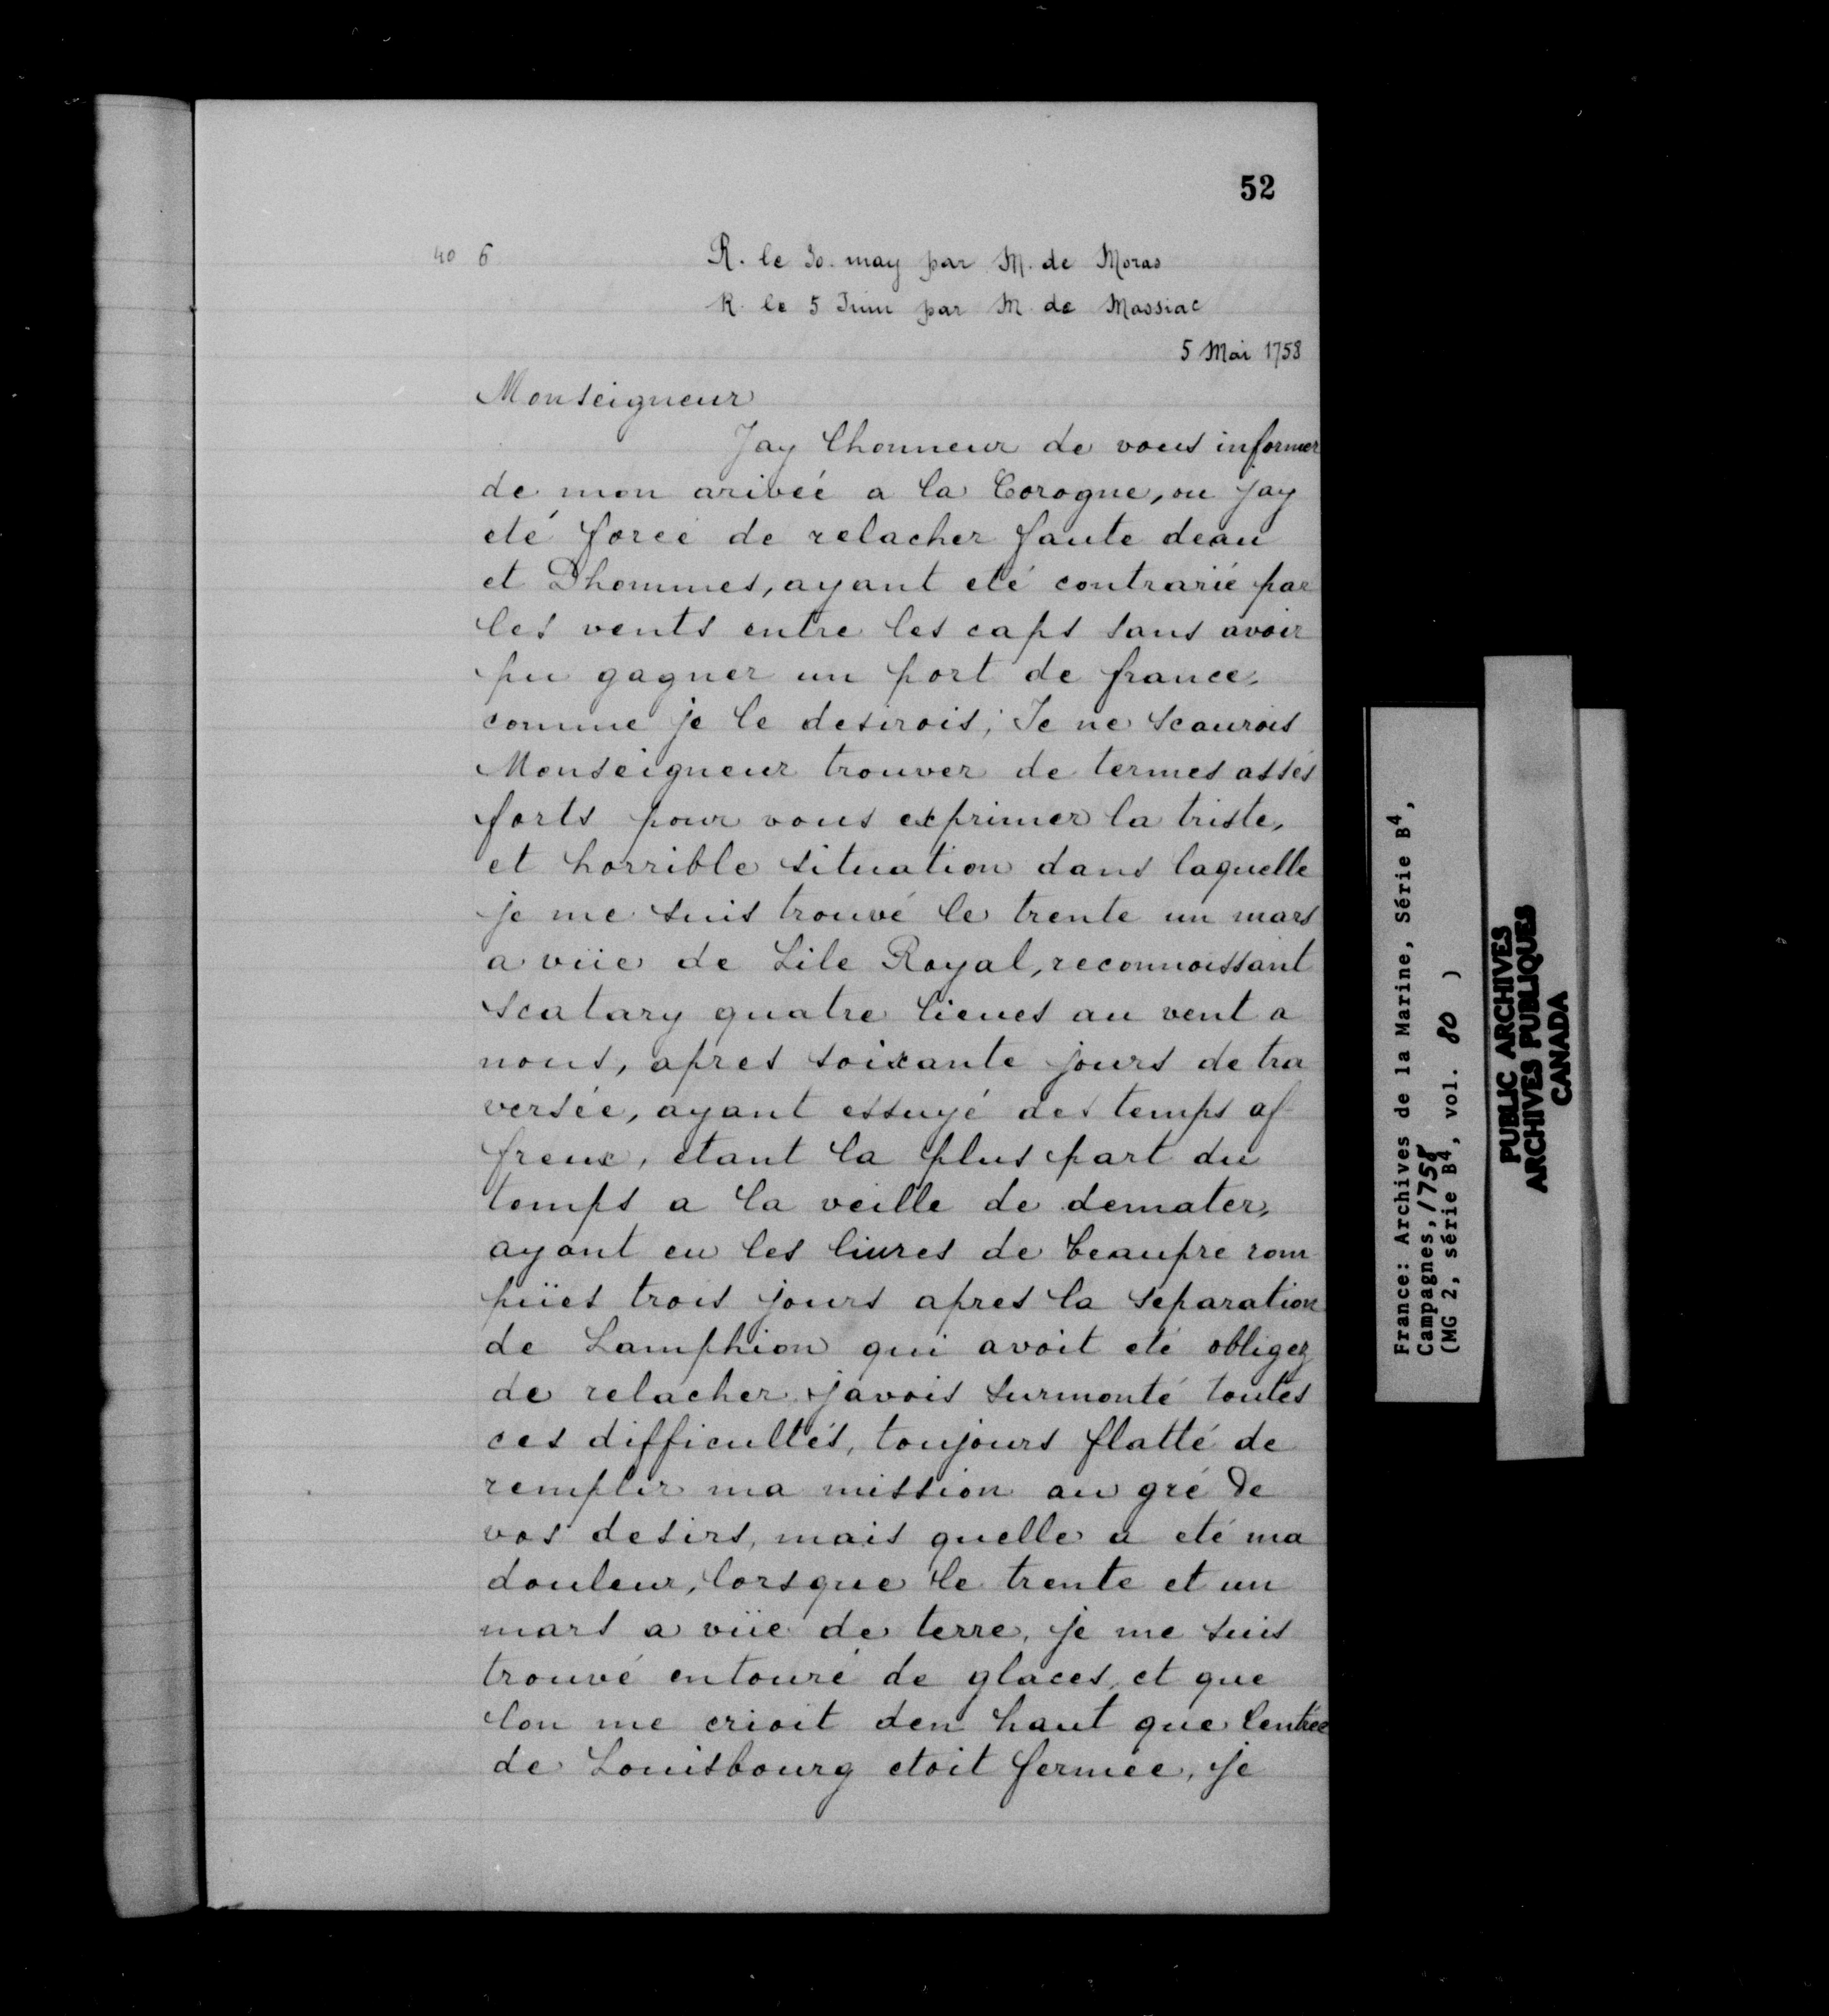 52
40 6 R. le 30. may par M. de Moras
R. le 5 Juin par M. de Massiac
5 Mai 1758
Monseigneur
Jay lhonneur de vous informer
de mon arivée a la Corogne, ou jay
eté forcé de relacher faute deau
et Dhommes, ayant eté contrarié par
les vents entre les caps sans avoir
pu gagner un port de france,
comme je le desirois; Je ne scaurois
Monseigneur trouver de termes assés
forts pour vous exprimer la triste,
et horrible situation dans laquelle
je me suis trouvé le trente un mars
a vüe de Lile Royal, reconnoissant
Scatary quatre lieues au vent a
nous, apres soixante jours de tra
versée, ayant essuyé des temps af
freux, etant la plus part du
temps a la veille de demater,
ayant eu les liures de beaupre rom
püies trois jours apres la separation
de Lamphion qui avoit eté obligez
de relacher javois surmonté toutes
ces difficultés, toujours flatté de
remplir ma mission au gré De
vos desirs, mais quelle a eté ma
douleur, lorsque le trente et un
mars a vüe de terre, je me suis
trouvé entouré de glaces, et que
lon me crioit den haut que lentrée
de Louisbourg etoit fermée, je
France: Archives de la Marine, Série B4,
Campagnes, 1758
(MG 2, série B4, vol. 80 )
PUBLIC ARCHIVES
ARCHIVES PUBLIQUES
CANADA